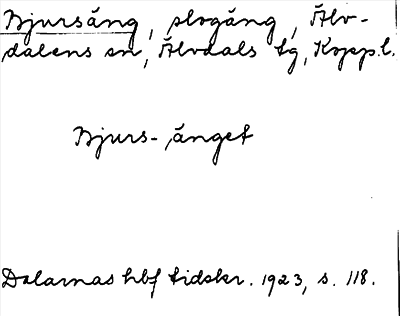 Bjursäng, slogäng, Älv-
dalens sn, Älvdals tg, Koppl.
Bjurs- änget
Dalarnas hbf tidskr. 1923, s. 118.